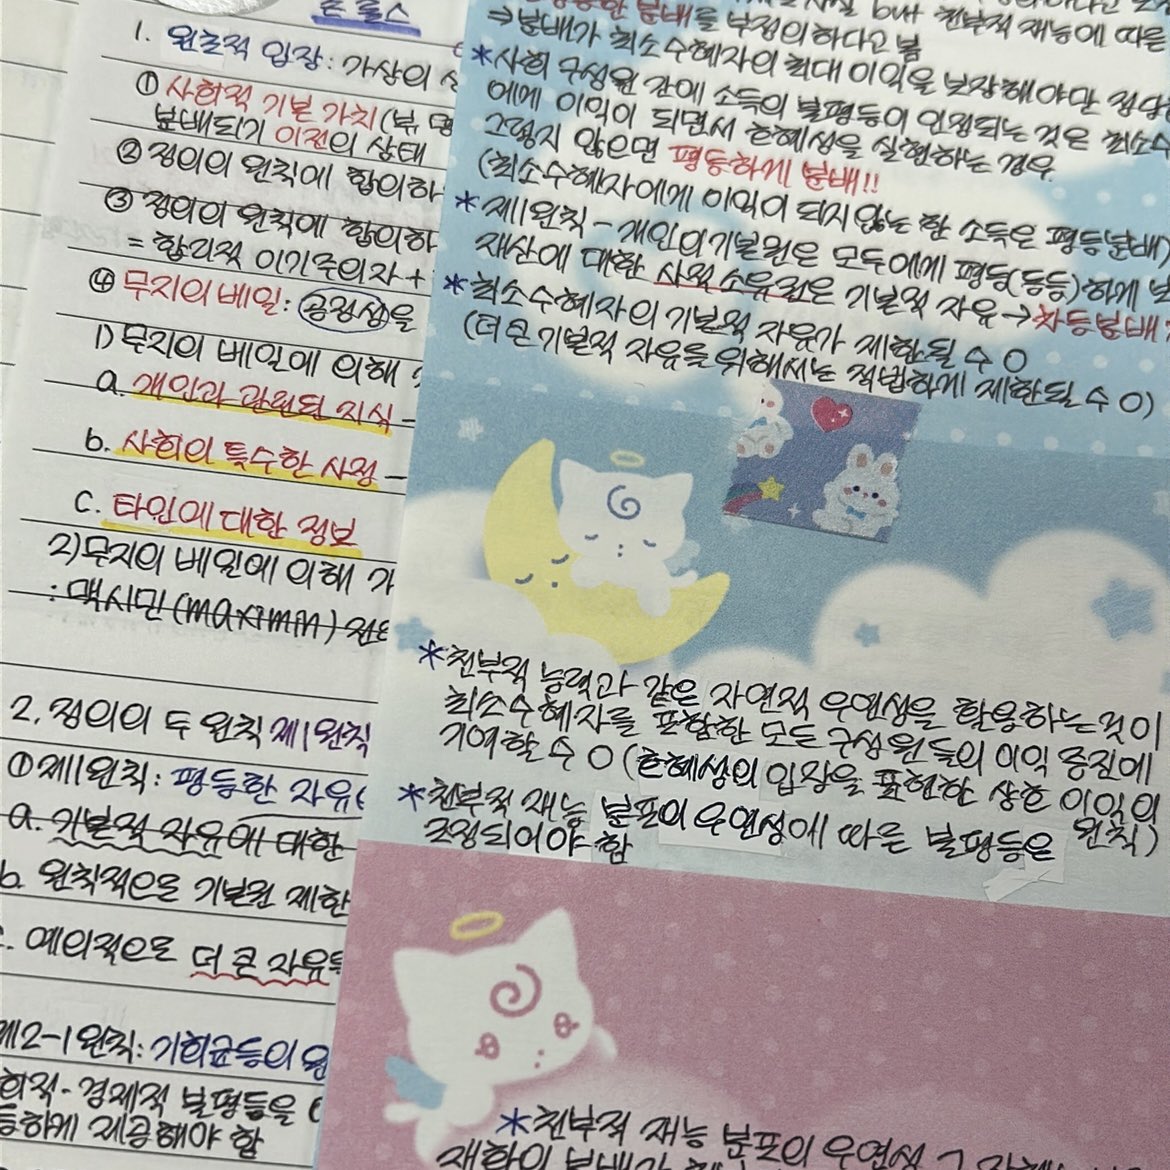 롤스
1. 원초적 입장: 가상의 상
① 사회적 기본 가치(부, 명
분배되기 이전의 상태
② 정의의 원칙에 합의하
③ 정의의 원칙에 합의하
= 합리적 이기주의자 +
④ 무지의 베일: 공정성을
1) 무지의 베일에 의해
a. 개인과 관련된 지식 -
b. 사회의 특수한 사정 -
c. 타인에 대한 정보
2) 무지의 베일에 의해 가
: 맥시민(maximin) 전
2. 정의의 두 원칙 제1원칙
① 제1원칙: 평등한 자유(
a. 기본적 자유에 대한
b. 원칙적으로 기본권 제한
c. 예외적으로 더 큰 자유를
제2-1원칙: 기회균등의 원
회적·경제적 불평등을
등하게 제공해야 함
한 분배를 부정의하다고 봄
⇒ 분배가 최소수혜자의 최대 이익을 보장해야만 정당
*사회 구성원 간에 소득의 불평등이 인정되는 것은 최소수
에게 이익이 되면서 호혜성을 실현하는 경우.
그렇지 않으면 평등하게 분배!!
(최소수혜자에게 이익이 되지 않는 한 소득은 평등분배)
* 제1원칙 - 개인의 기본권은 모두에게 평등(동등)하게 보
재산에 대한 사적 소유권은 기본적 자유 → 차등분배
* 최소수혜자의 기본적 자유가 제한될 수 O
(더 큰 기본적 자유를 위해서는 적법하게 제한될 수 O)
*천부적 능력과 같은 자연적 우연성을 활용하는 것이
최소수혜자를 포함한 모든 구성원들의 이익 증진에
기여할 수 O (호혜성의 입장을 표현한 상호 이익의 원칙)
*천부적 재능 분포의 우연성에 따른 불평등은
조정되어야 함
*천부적 재능 분포의 우연성 그 자체
재화의 분배가